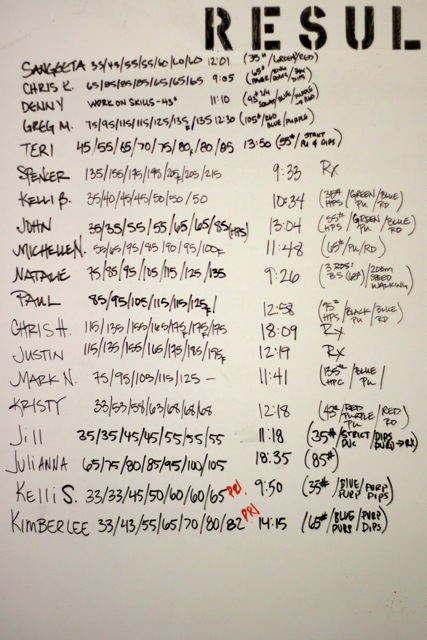 RESUL
SANGEETA 33/43/55/55/60/60/60 12:01 (35# /GREEN/RED)
CHRIS K. 65/85/85/85/65/65/65 9:05 (65#
DENNY WORK ON SKILLS-43# 11:10
GREG M. 75/95/115/115/125/135F/135 12:30 (105#/RED BLUE/PURPLE)
TERI 45/55/65/70/75/80F/80/85 13:50 (55# STRICT PU & DIPS)
SPENCER 135/155/175/195/205F/205/215 9:33 Rx
KELLI B. 35/40/45/45/50/50/50 10:34 (35# HPS/GREEN PU/BLUE RD)
JOHN 35/35/55/55/65/65/85(HPS) 13:04 (55# HPS/GREEN PU/BLUE RD)
MICHELLE N. 55/65/75/85/90/95/100F 11:48 (65#/PU/RD)
NATALIE 75/85/95/105/115/125/135 9:26 (3 RDS: BS (65#)/200m SPEED WALKING)
PAUL 85/95/105/115/115/125F/ 12:58 (95# HPS/BLACK PU/BLUE RD)
CHRIS H. 115/135/155/165/175F/175/175 18:09 Rx
JUSTIN 115/135/155/165/175/185/195F 12:19 Rx
MARK N. 75/95/105/115/125 – 11:41 (135# HPC/BLUE PU/
KRISTY 33/53/58/63/68/68/68 12:18 (43#/RED PURPLE PU/RED RD)
Jill 35/35/45/45/55/55/55 11:18 (35#/STRICT /DIPS
JULIANNA 65/75/80/85/95/100/105 18:35 (85#)
KELLI S. 33/33/45/50/60/60/65 PR! 9:50 (35#/BLUE/PURP PURP DIPS)
KIMBERLEE 33/43/55/65/70/80/82 PR! 14:15 (65#/BLUE/PURP PURP DIPS)